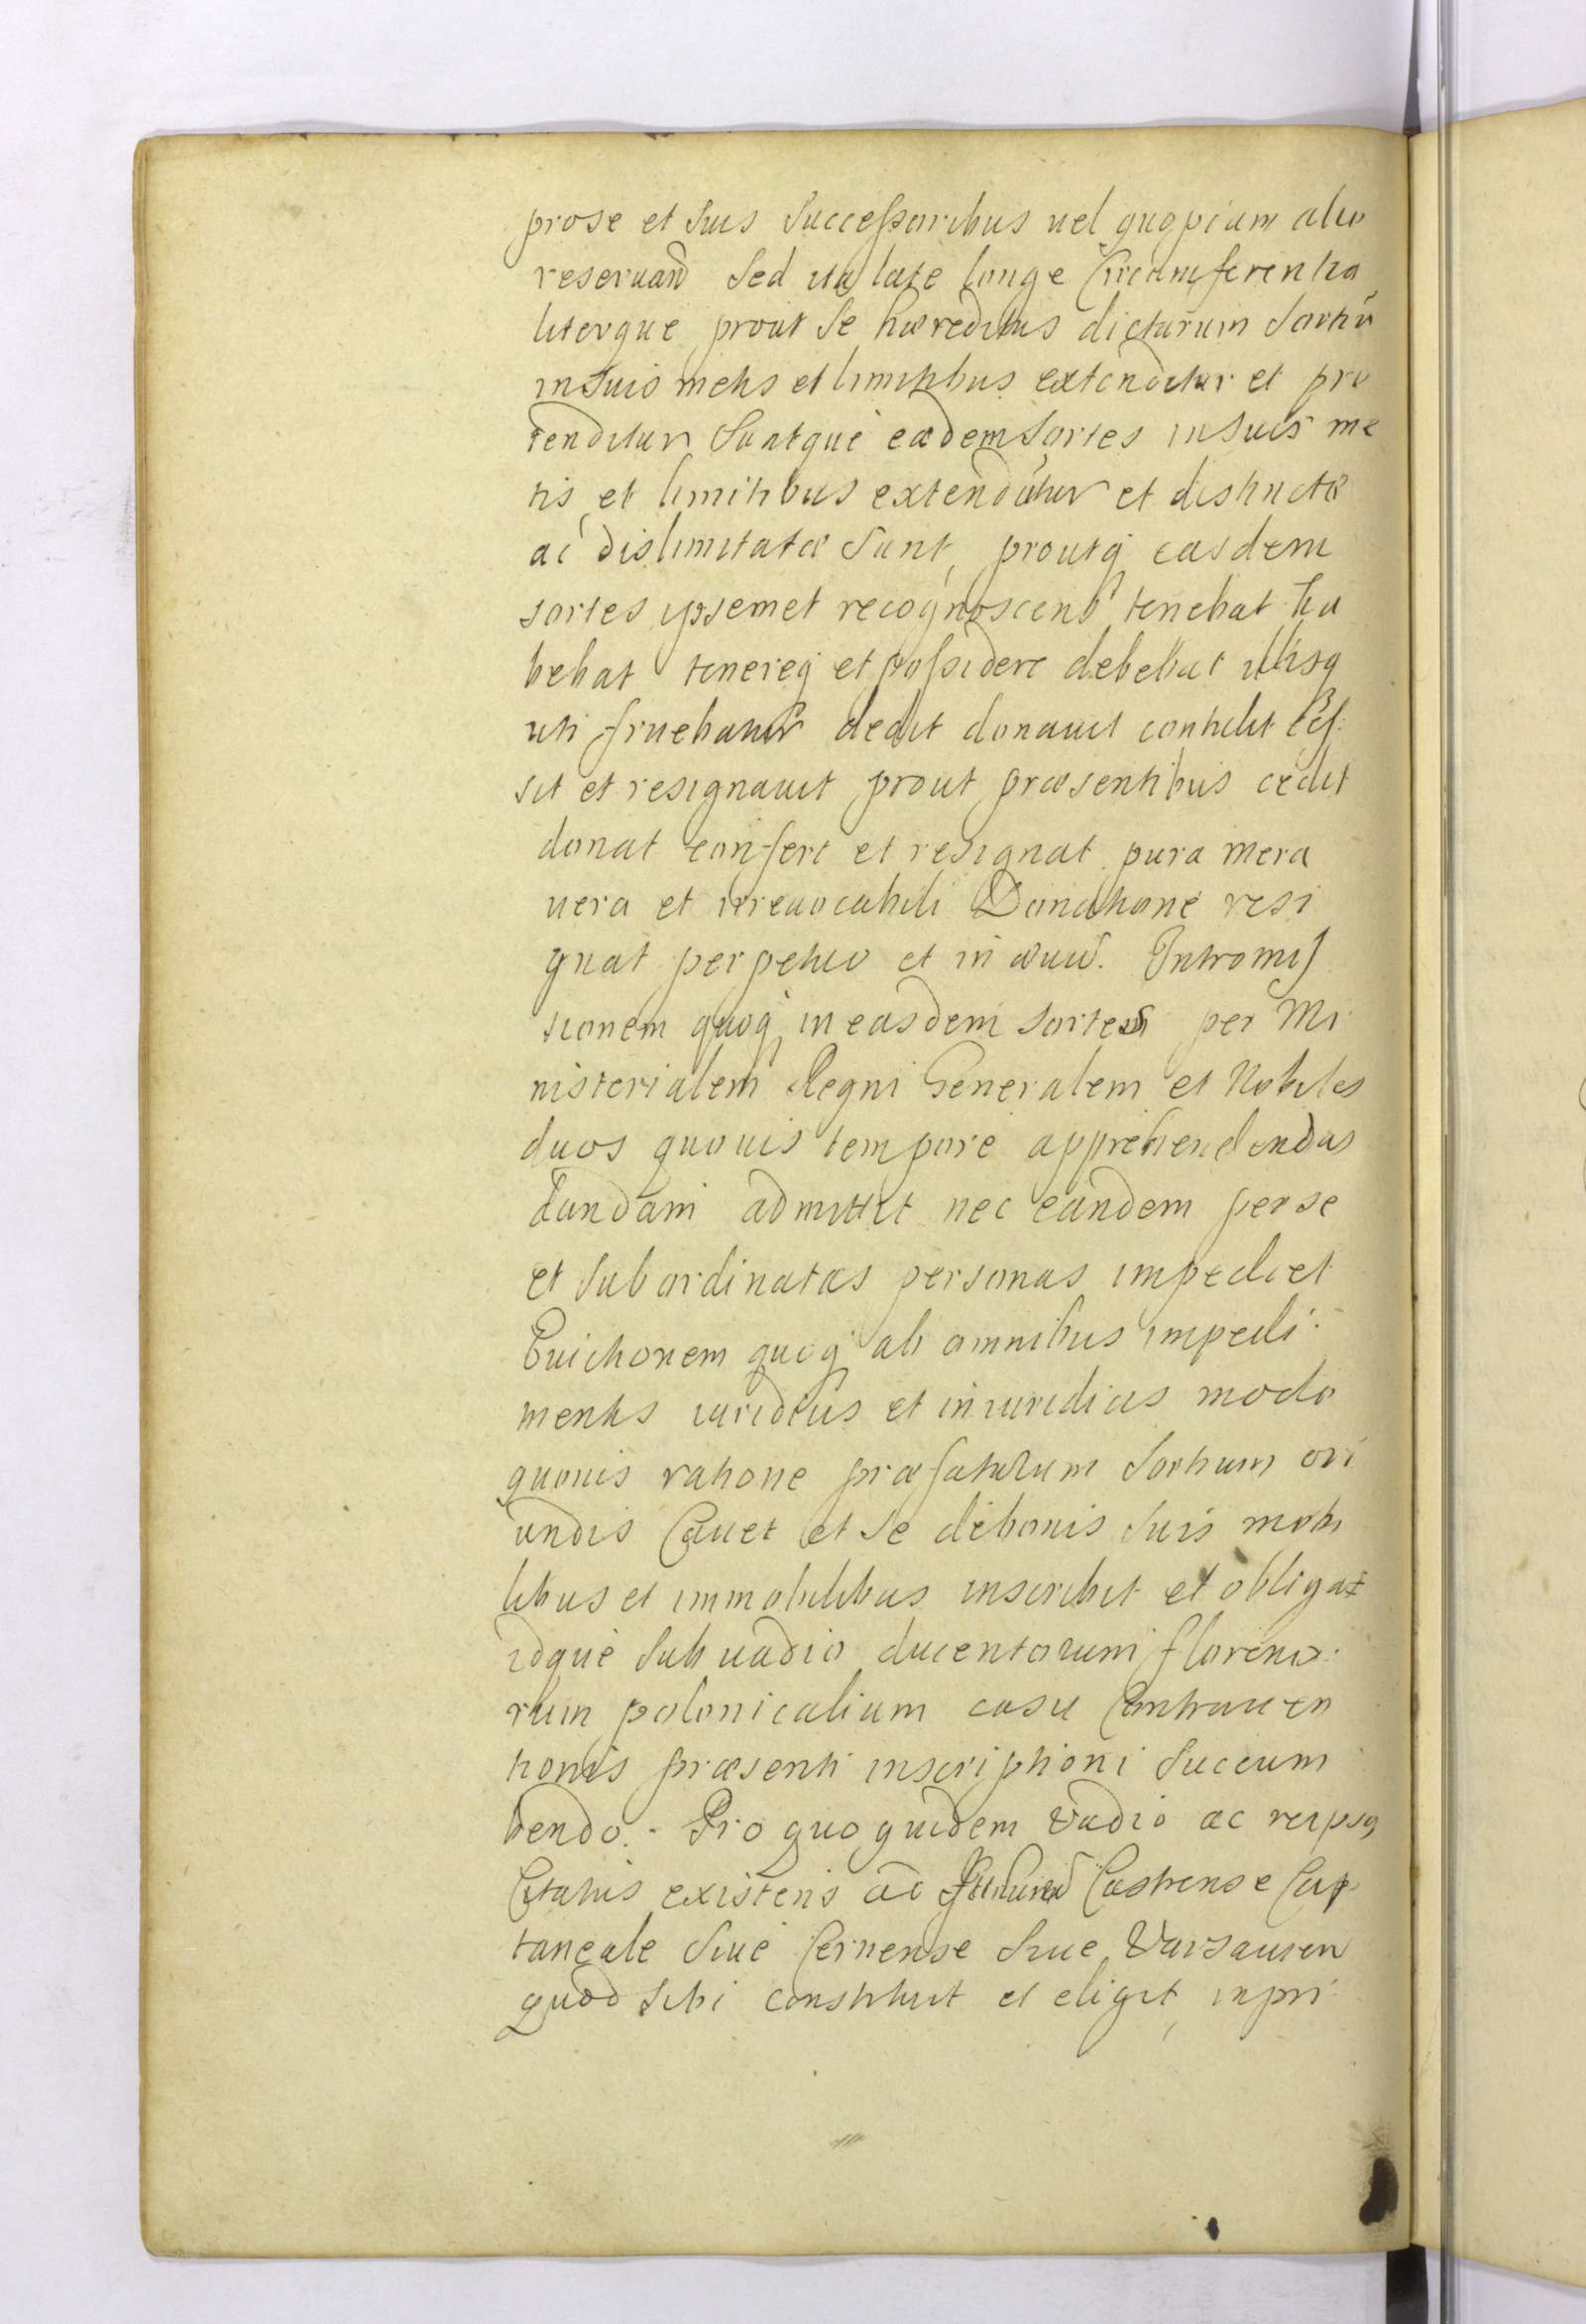 prose et suis successoribus uel quopiam alio
reseruand sed ita late longe Circumferentia
literque prout se haereditas dictarum Sortiũ
in suis metis et limitibus extenditur et pro
tenditur Suntque eaedem Sortes in suis me
tis et limitibus extendũtur et distinctae
ac dislimitatae Sunt, proutq easdem
sortes ipsemet recognoscens tenebat ha
bebat tenereq et possidere debebat illisq
uti fruebatur dedit donauit contulit ces
sit et resignauit prout praesentibus cedit
donat confert et resignat pura mera
uera et irreuocabili Donatione resi
gnat perpetuo et in aeuũ. Intromis
sionem quoq in easdem sortes per Mi
nisterialem Regni Generalem et Nobiles
duos quouis tempore apprehendendas
dandam admittit nec eandem per se
et subordinatas personas impediet
Euictionem quoq ab omnibus impedi
mentis iuridicis et iniuridicis modo
quouis ratione praefatarum Sortium ori
undis Cauet et se de bonis suis mobi
libus et immobilibus inscribit et obligat
idque sub uadio ducentorum floreno
rum polonicalium casu Contrauen
tionis praesenti inscriptioni succum
bendo. Pro quo quidem Vadio ac reipsa
Citatus existens ad Castrense Cap
taneale siue Cernense siue Varsauien
quod sibi constituit et eligit, inpri